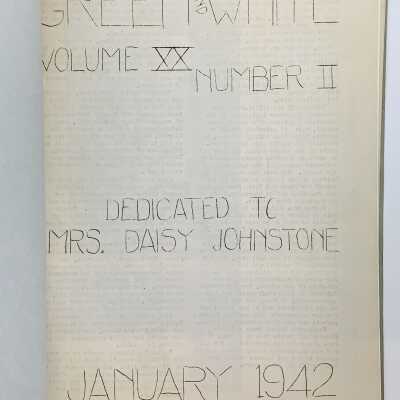 GREEN & WHITE
VOLUME XX
NUMBER II
DEDICATED TO
MRS. DAISY JOHNSTONE
JANUARY 1942